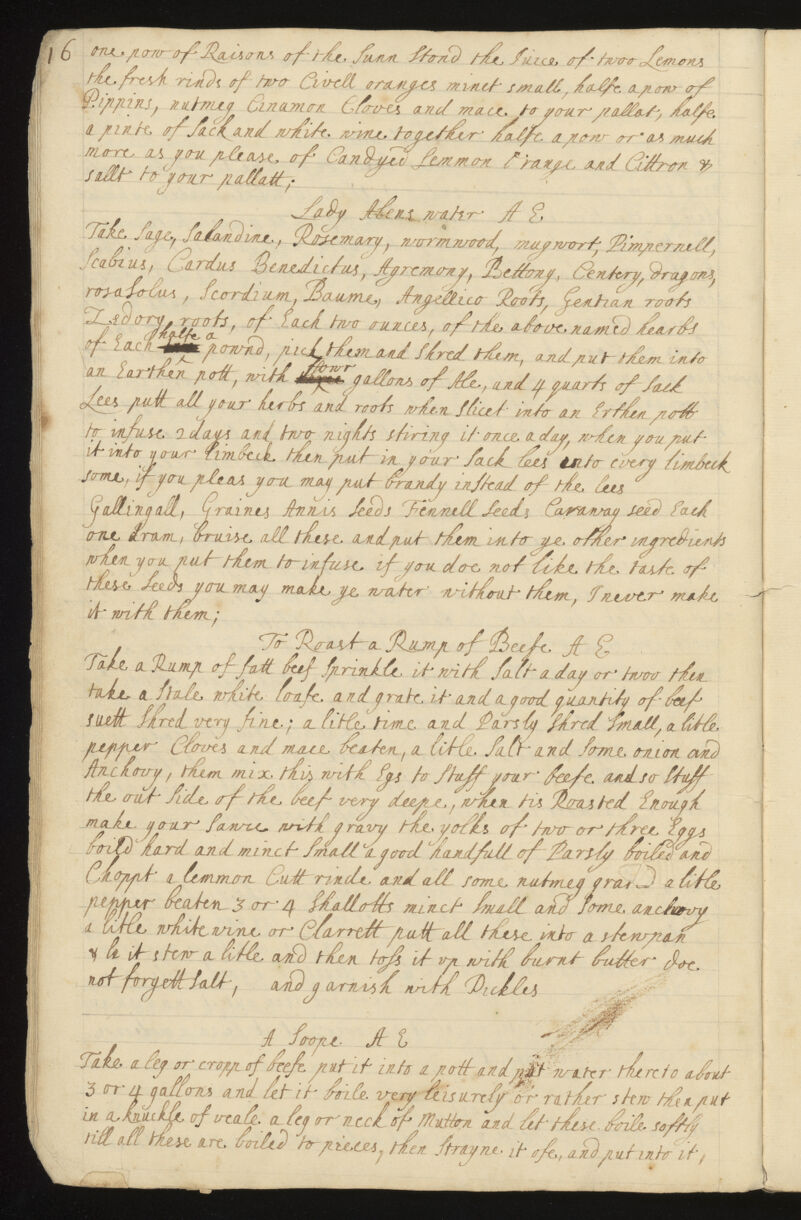 16
one pow of Raisons of the Sunn Stond the Juice of twoo Lemons
the fresh rinds of two Civell oranges minct small, halfe a pow of
Pippins, nutmeg Cinamon Cloves and mace to your pallat, halfe
a pinte of Sack and white wine together halfe a pow or as much
more as you please of Candyed Lemmon Orange and Cittron &
sallt to your pallatt;
Lady Abens water A E
Take Sage, Salandine, Rosemary, wormwood, mugwort, Pimpernell,
Scabius, Cardus Benedictus, Agremony, Bettony, Centery, dragons,
rosa Solus, Scordium, Baume, Angellico Roots, Gentian roots
Zedory roots, of Each two ounces, of the above named hearbs
of Each halfe a pownd, pick them and Shred them, and put them into
an Earthen pott, with fowr gallons of Ale, and 4 quarts of Sack
Lees putt all your herbs and roots when Slicet into an Erthen pott
to infuse 2 days and two nights stiring it once a day, when you put
it into your limbeck then put in your Sack lees into every limbeck
some, if you pleas you may put brandy instead of the lees
Gallingall, Graines Annis Seeds Fennell Seeds Caraway seed Each
one dram, bruise all these and put them into ye other ingredients
when you put them to infuse if you doe not like the taste of
these Seeds you may make ye water without them, I never make
it with them;
To Roast a Rump of Beefe A E
Take a Rump of fatt beef Sprinkle it with Salt a day or twoo then
take a Stale white loafe and grate it and a good quantity of beef
suett Shred very fine; a litle time and Parsly Shred Small, a litle
pepper Cloves and mace beaten, a litle Salt and Some onion and
Anchovy, them mix this with Egs to Stuff your beefe and so Stuff
the out Side of the beef very deepe, when tis Roasted Enough
make your Sawce with gravy the yolks of two or three Eggs
boild hard and minct Small a good handfull of Parsly boiled and
Choppt a lemmon Cutt rinde and all some nutmeg grated a litle
pepper beaten 3 or 4 Shallotts minct Small and Some anchovy
a litle white wine or Clarrett putt all these into a stewpan
& let it stew a litle and then toss it vp with burnt butter doe
not forgett Salt, and garnish with Pickles
A Soope A E
Take a leg or cropp of beefe put it into a pott and put water thereto about
3 or 4 gallons and let it boile very leisurely or rather stew then put
in a knuckle of veale a leg or neck of Mutton and let these boile softly
till all these are boiled to pieces, then Strayne it ofe, and put into it,